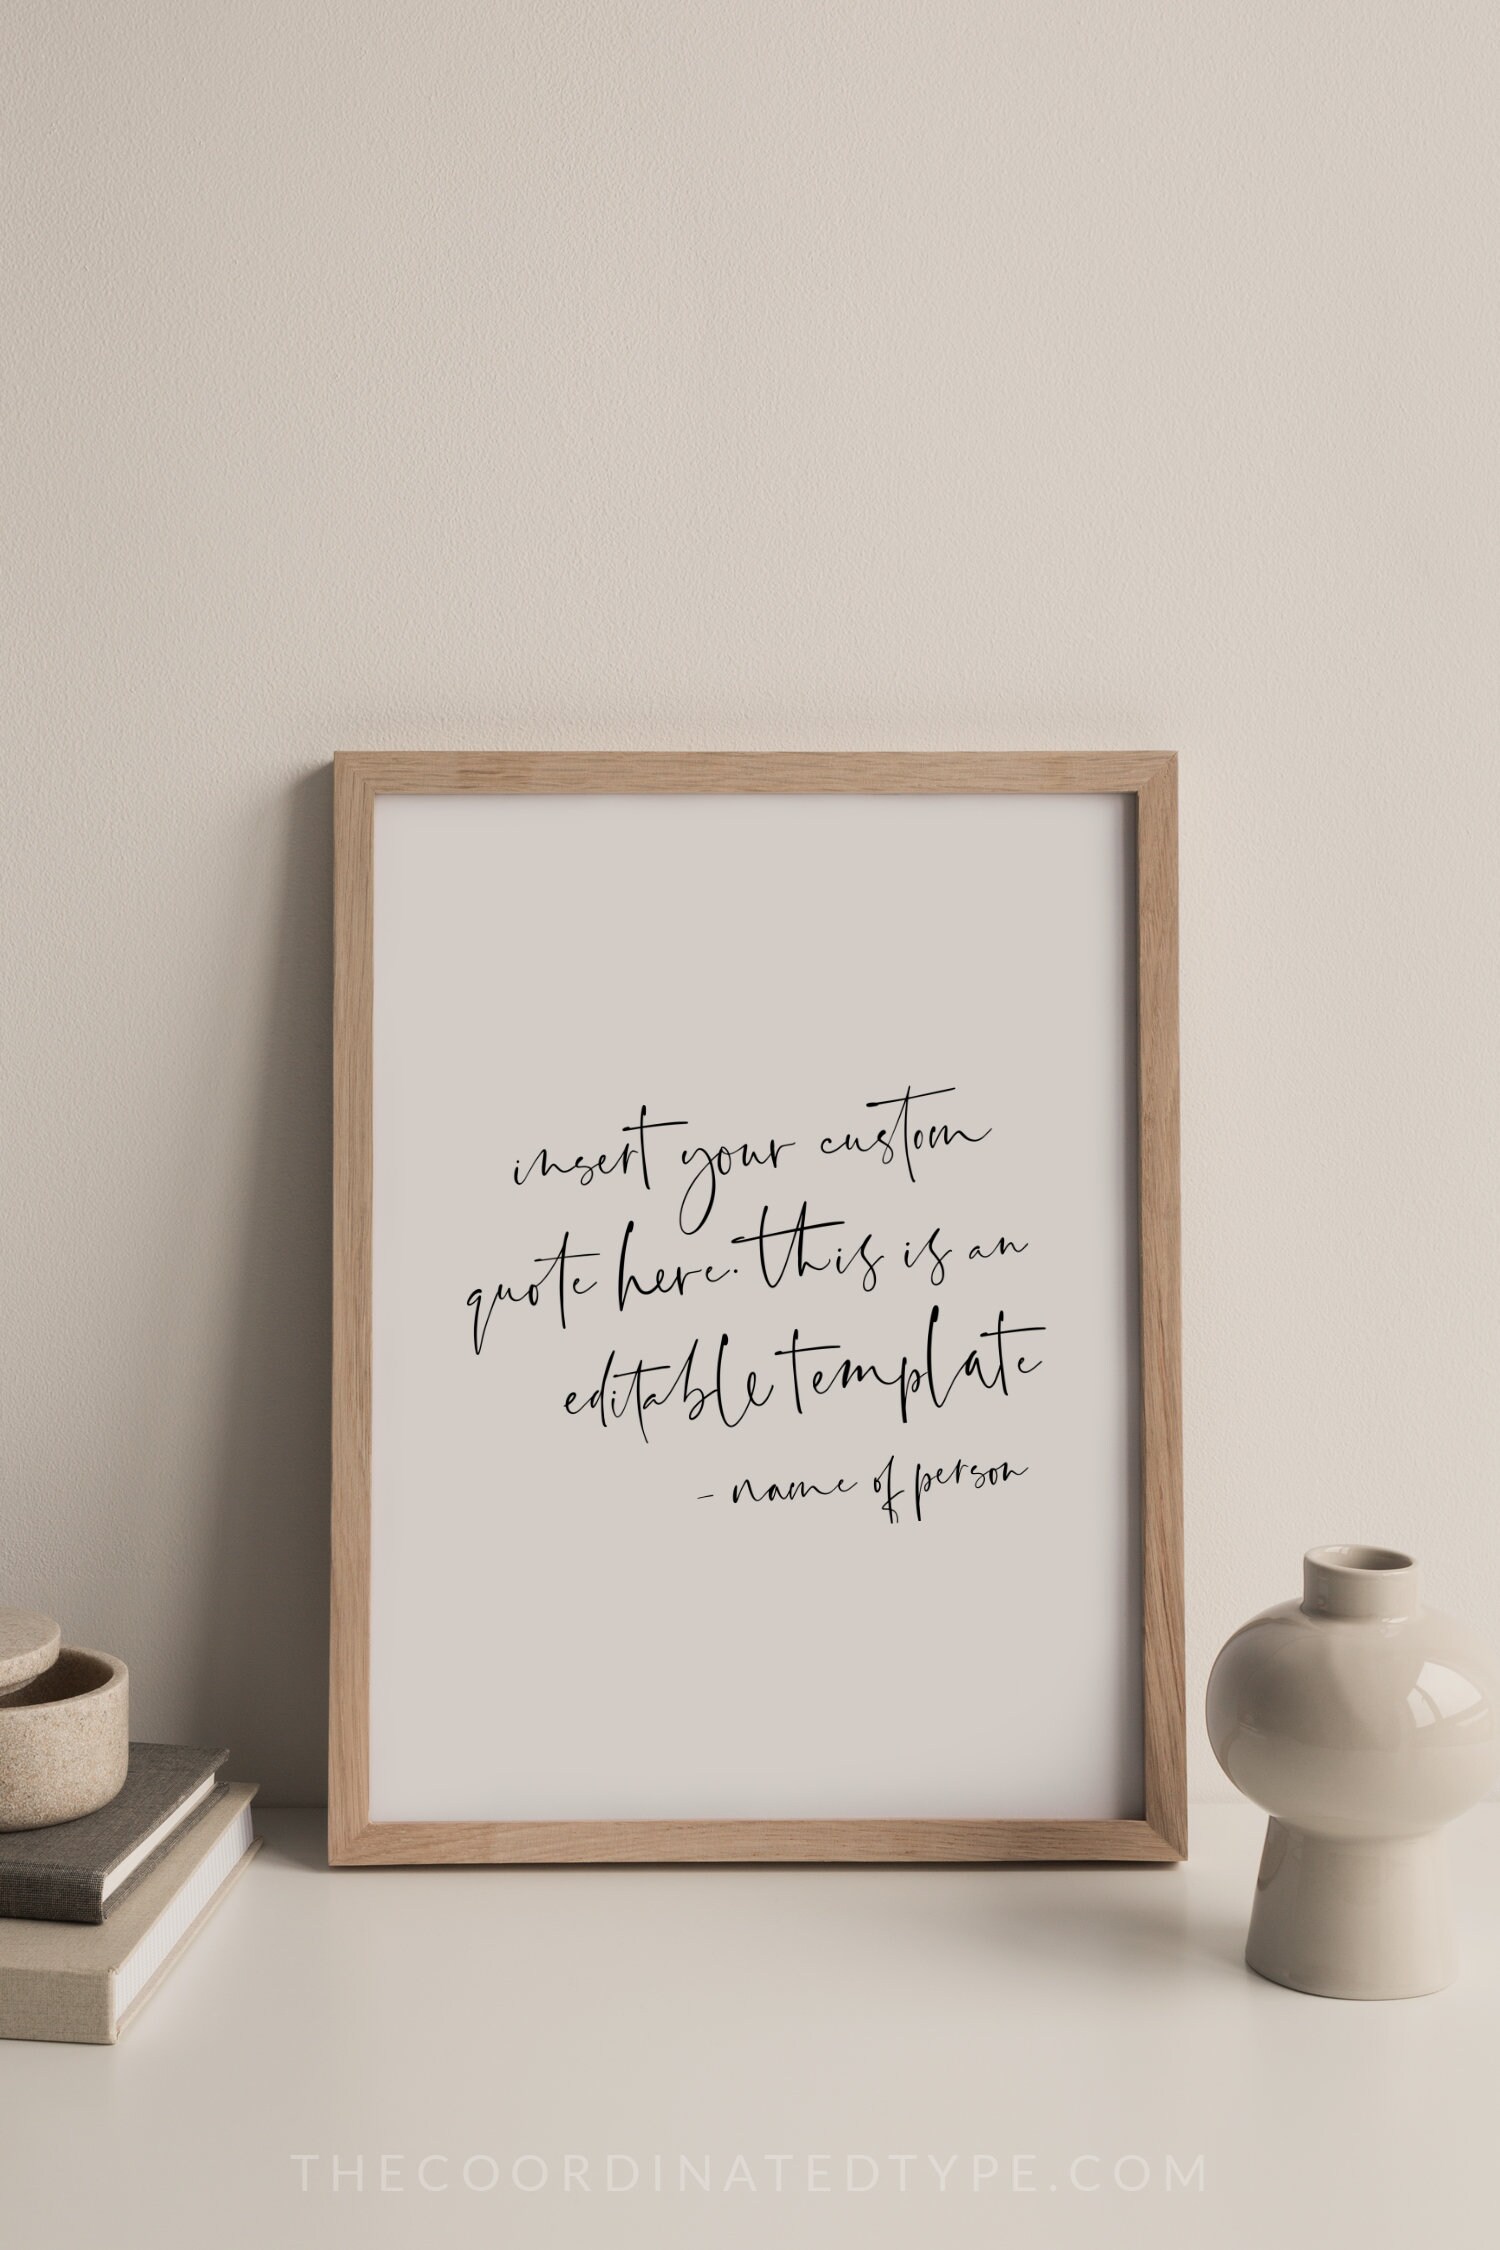 insert your custom
quote here. this is an
editable template
- name of person
THECOORDINATEDTYPE.COM